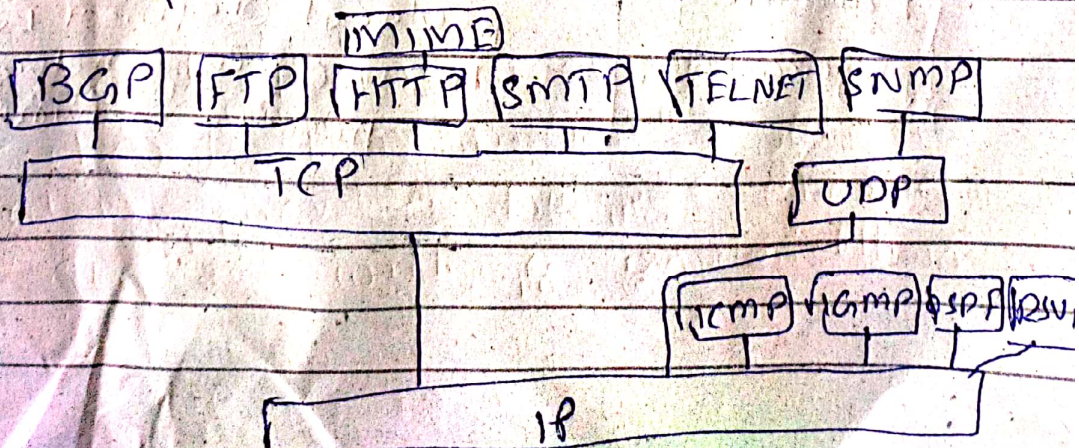 MIME
BGP FTP HTTP SMTP TELNET SNMP
TCP UDP
ICMP IGMP OSPF RSV
IP